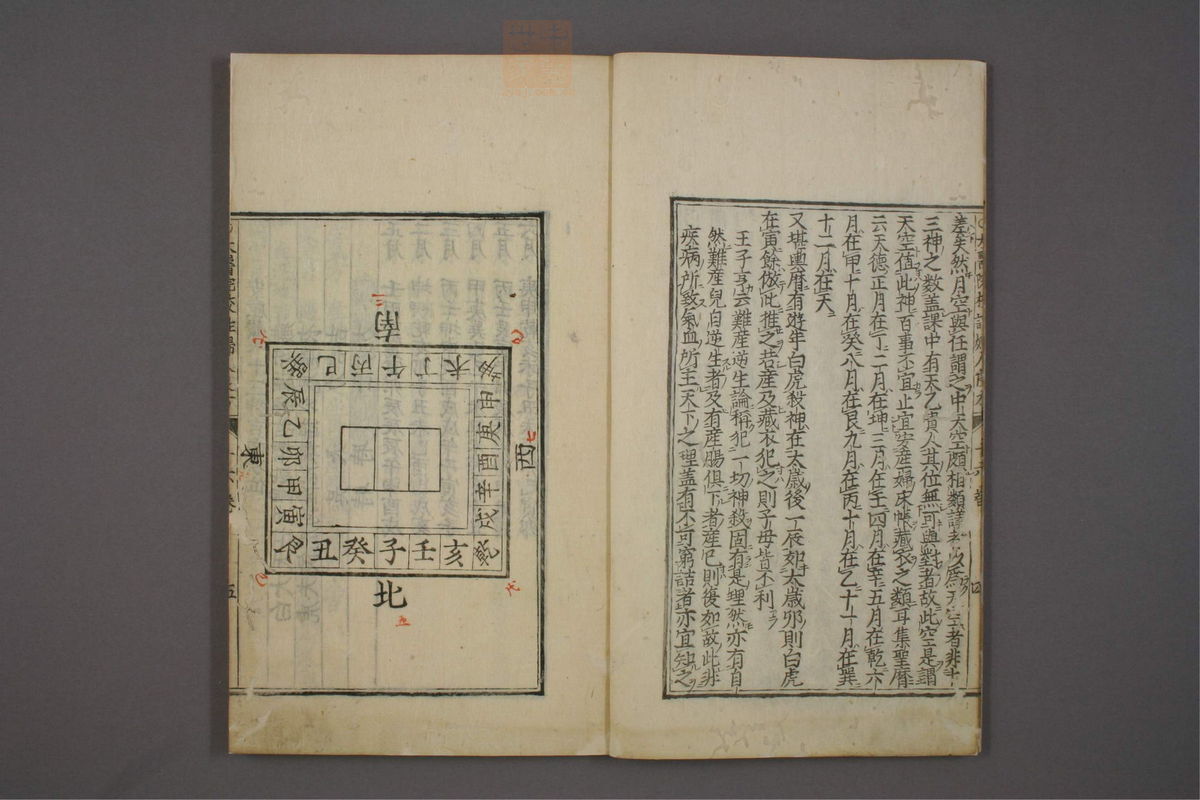 差矣然月空與任謂之中天空頗相類謹
三神之数蓋課中有天乙貴人其位無可與對者故此空是謂
天空值此神百事不宜止宜安産婦床帳藏衣之類耳集聖曆
云天德正月在丁二月在坤三月在壬四月在辛五月在乾六
月在甲十月在癸八月在艮九月在丙十月在乙十一月在巽
十二月在天
又堪輿曆有遊年白虎殺神在太歳後一辰如太歳夘則白虎
在寅餘倣此推之若産及藏衣犯之則子母皆不利
王子亨云難産逆生論稱犯一切神殺固有是理然亦有自
然難産兒自逆生者及有産腸俱下者産已則復如故此非
疾病所致氣血所主天下之理蓋有不可窮詰者亦宜知之
四
南
巳丙午丁未
申庚酉辛戌
西
東
辰乙卯甲寅
丑癸子壬亥
北
五